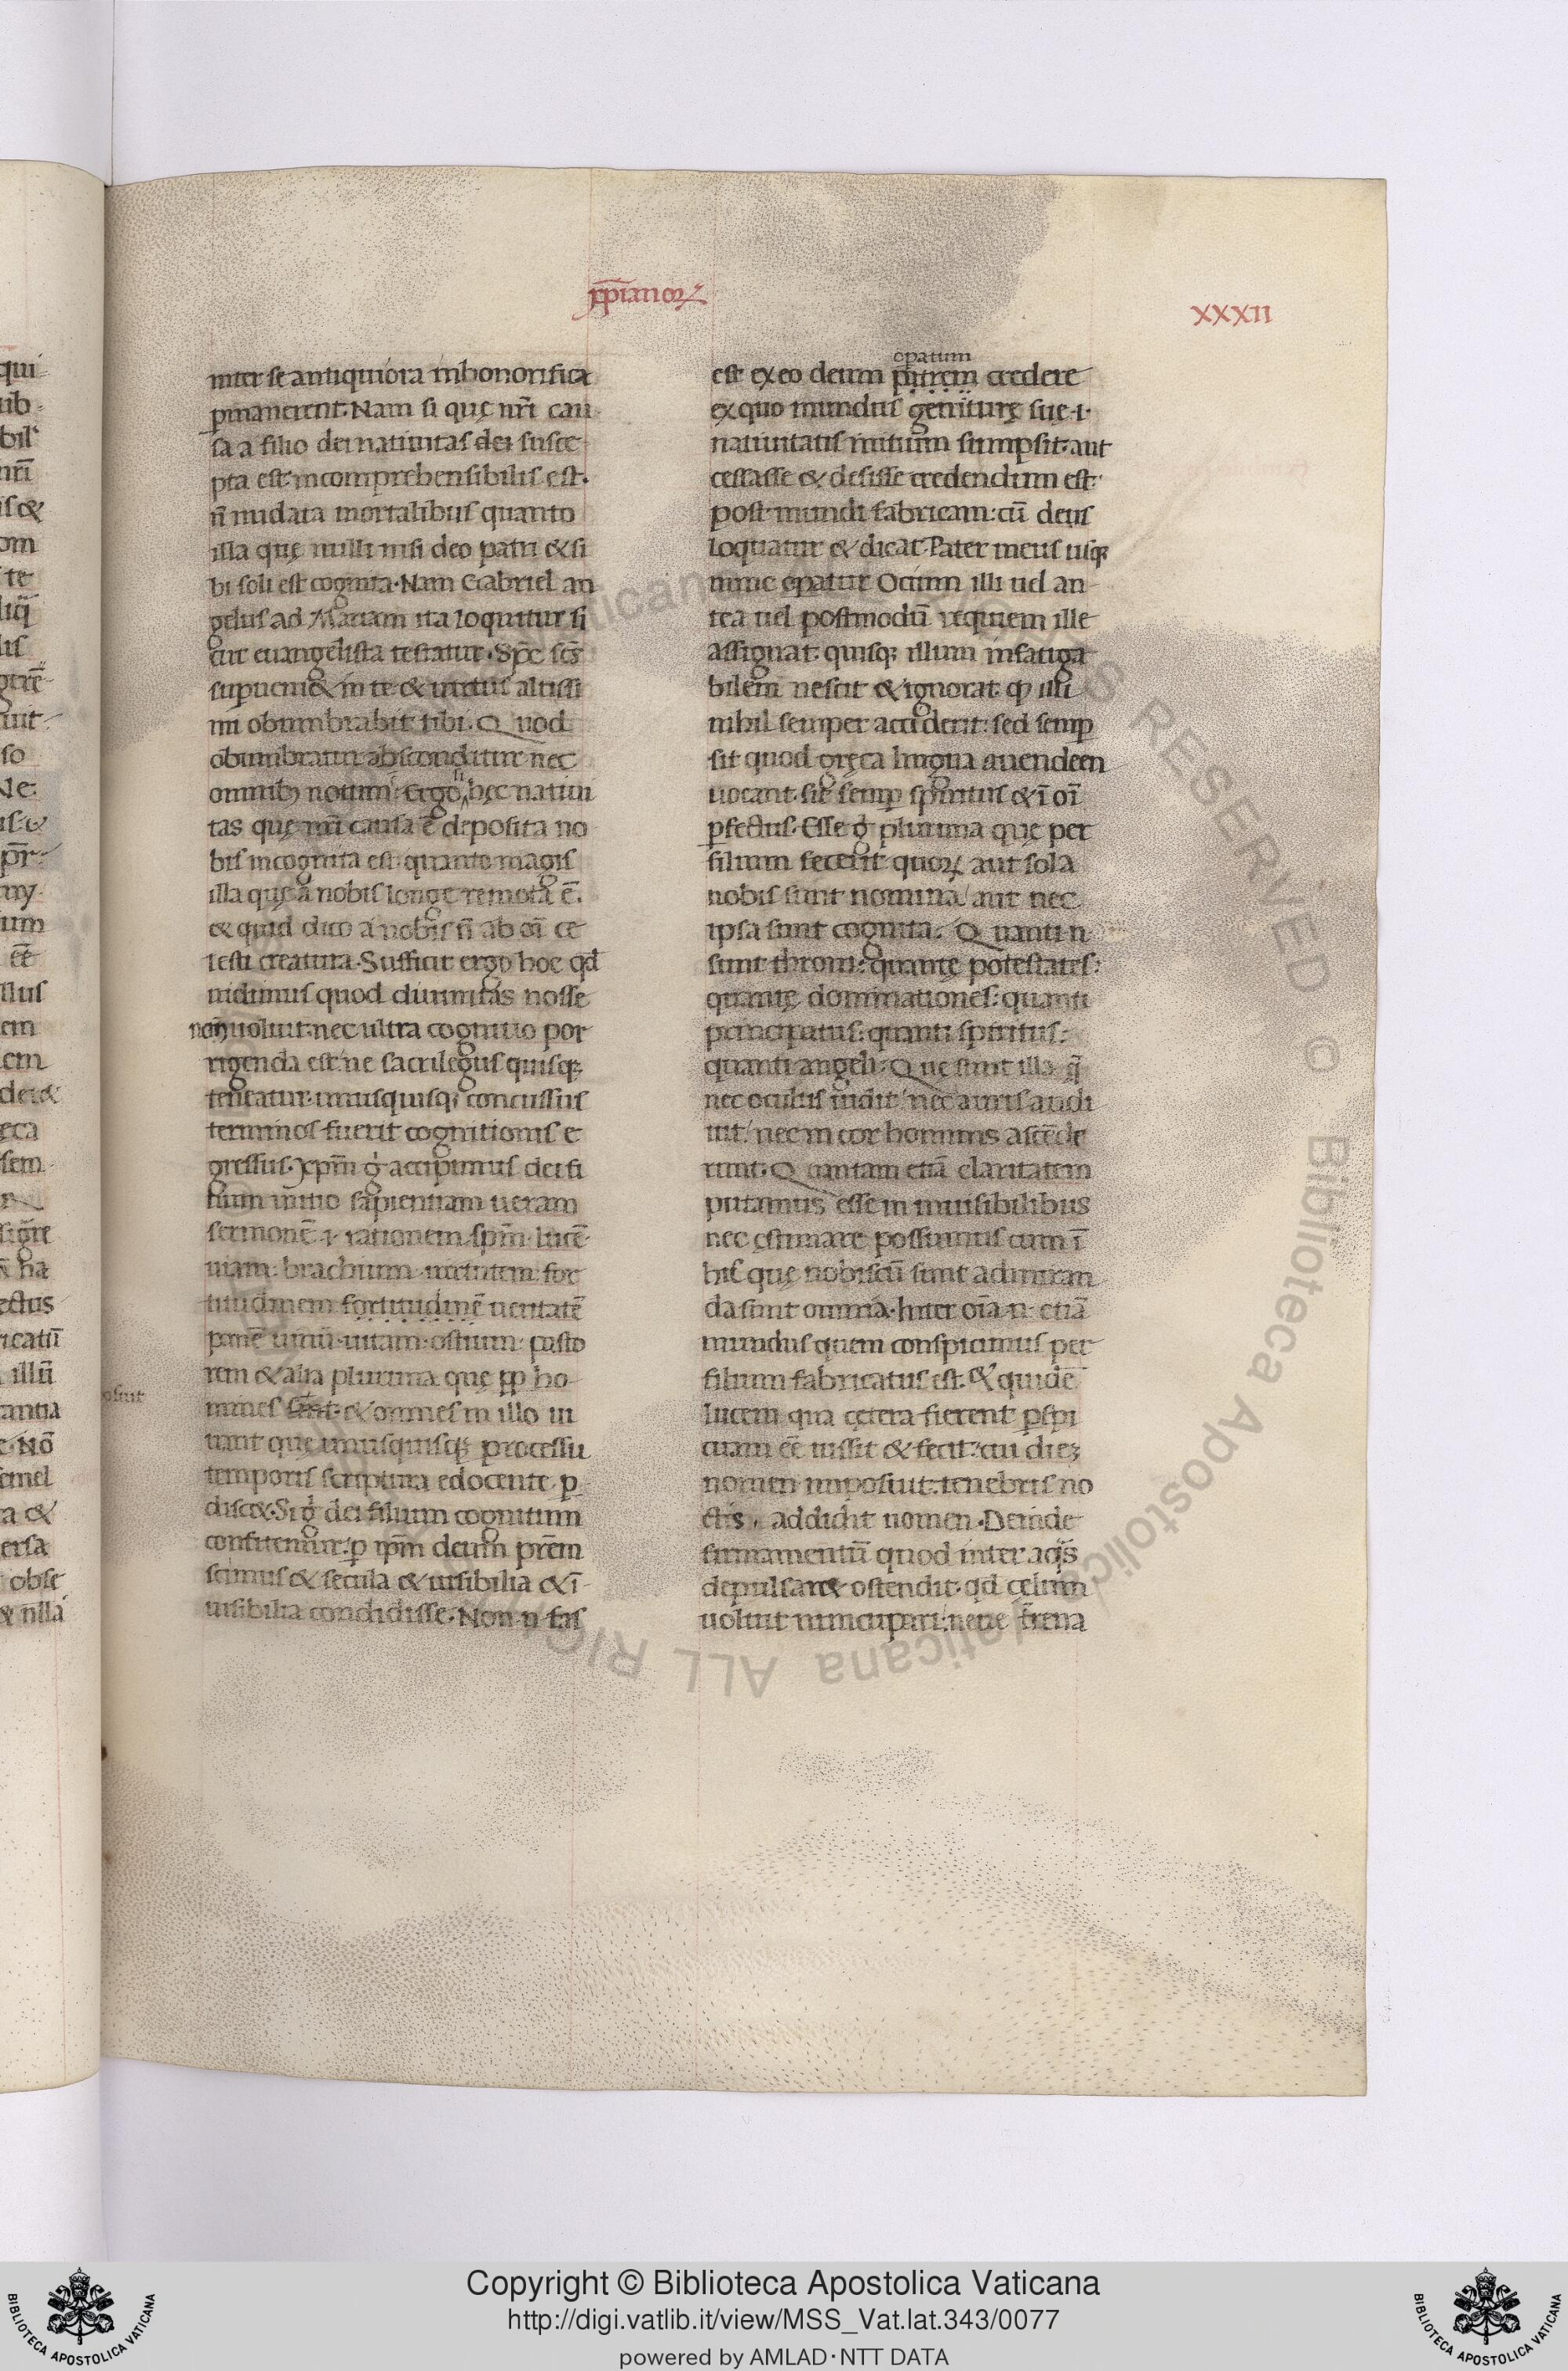 xp̅ianoꝝ
XXXII
inter se antiquiora inhonorifica
ꝑmanerent. Nam si quę nr̅i cau
sa a filio dei natiuitas dei susce
pta est: incomprehensibilis est.
n̅ nudata mortalibus quanto
illa quę nulli nisi deo patri & si
bi soli est cognita. Nam Gabriel an
gelus ad Mariam ita loquitur si
cut euangelista testatur. Sp̅c sc̅s
supueni& in te & uirtus altissi
mi obumbrabit tibi. Quod
obumbratur absconditur nec
omnibꝫ notum. Ergo si hęc natiui
tas quę nr̅i causa e̅ deposita no
bis incognita est: quanto magis
illa quę a nobis longe remota e̅.
& quid dico a nobis n̅ ab oi̅ ce
lesti creatura. Sufficit ergo hoc qd̅
uidimus quod diuinitas nosse
non uoluit: nec ultra cognitio por
rigenda est: ne sacrilegus quisqꝫ
teneatur: unusquisqꝫ concussus
terminos fuerit cognitionis e
gressus. Xpm̅ g̊ accipimus dei fi
lium initio sapientiam ueram
sermone̅ .i. rationem. spm̅. luce̅.
uiam. brachium. uirtutem. for
titudinem fortitudine̅ ueritate̅
pane̅ unu̅. uitam. ostium. pasto
rem & alia plurima quę ꝓp ho
mines sunt. & omnes in illo ui
uant quę unusquisqꝫ processu
temporis scriptura edocente ꝑ
disc&. Si g̊ dei filium cognitum
confitemur. ꝑ ip̅m deum pr̅em
scimus & secula & uisibilia & i̅
uisibilia condidisse. Non n̅ fas
opatum
est ex eo deum patrem credere
ex quo mundus geniturę suę .i.
natiuitatis initium sumpsit. aut
cessasse & desisse credendum est
post mundi fabricam: cu̅ deus
loquatur & dicat. Pater meus usqꝫ
nunc opatur Ocium illi ud an
tea uel postmodu̅ requiem ille
assignat. quisqꝫ illum infatiga
bilem nescit & ignorat. qđ illi
nihil semper acciderit: sed semꝑ
sit quod gręca lingua auendeen
uocant. sic̅ semꝑ spiritus & i̅ oi̅
ꝑfectus. Esse g̊ plurima quę per
filium fecerit quoꝝ aut sola
nobis sunt nomina/ aut nec
ipsa sunt cognita. Quanti n̅
sunt throni: quantę potestates:
quantę dominationes: quanti
principatus: quanti spiritus:
quanti angeli. Que sunt illa q̅
nec oculus uidit/ nec auris audi
uit/ nec in cor hominis asce̅de
runt. Quantam etia̅ claritatem
putamus esse in inuisibilibus
nec ęstimare possumus cum i̅
his quę nobiscu̅ sunt admiran
da sint omnia. Inter oi̅a n̅ etia̅
mundus quem conspicimus per
filium fabricatus est. & quide̅
lucem qua cętera fierent ꝑspi
cuam ee̅ iussit & fecit: cui diei
nomen imposuit. tenebris no
ctis . addidit nomen. Deinde
firmamentu̅ quod inter aq̅s
depulsare ostendit. qd̅ cęlum
uoluit nuncupari. neue fr̅ena